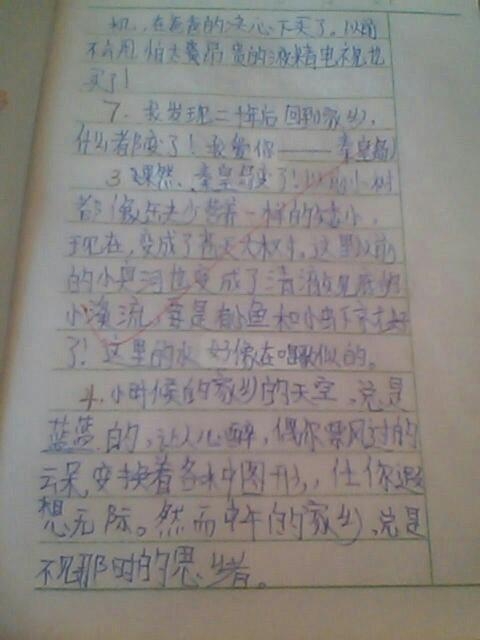 机，在爸爸的决心下买了。以前
不会用怕太费昂贵的液晶电视也
买了！
7. 我发现二十年后回到家乡，
什么都变了！我爱你——秦皇岛
3 果然，秦皇岛变了！以前小树
都像缺少营养一样的矮小，
现在，变成了苍天大权才。这里以前
的小臭河也变成了清澈见底的
小溪流，要是有小鱼和小虫下才好
了！这里的水好像在唱歌似的。
4. 小时候的家乡的天空，总是
蓝蓝的，让人心醉，偶尔禁风过的
云朵变换着各种图形，任你遐
想无际。然而中午的家乡，总是
不见那时的思者。